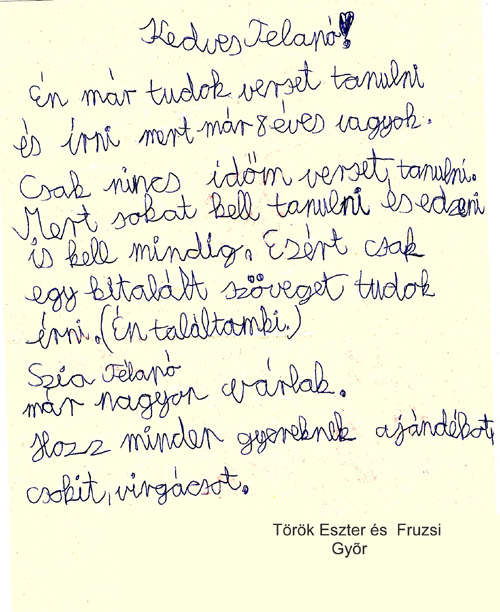 Kedves Télapó!
Én már tudok verset tanulni
és írni mert már 8 éves vagyok.
Csak nincs időm verset, tanulni.
Mert sokat kell tanulni és edzeni
is kell mindig. Ezért csak
egy kitalált szöveget tudok
érni. (Én találtamki.)
Szia Télapó
már nagyon várlak.
Hozz minden gyereknek ajándékot,
csokit, virgácsot.
Török Eszter és Fruzsi
Győr